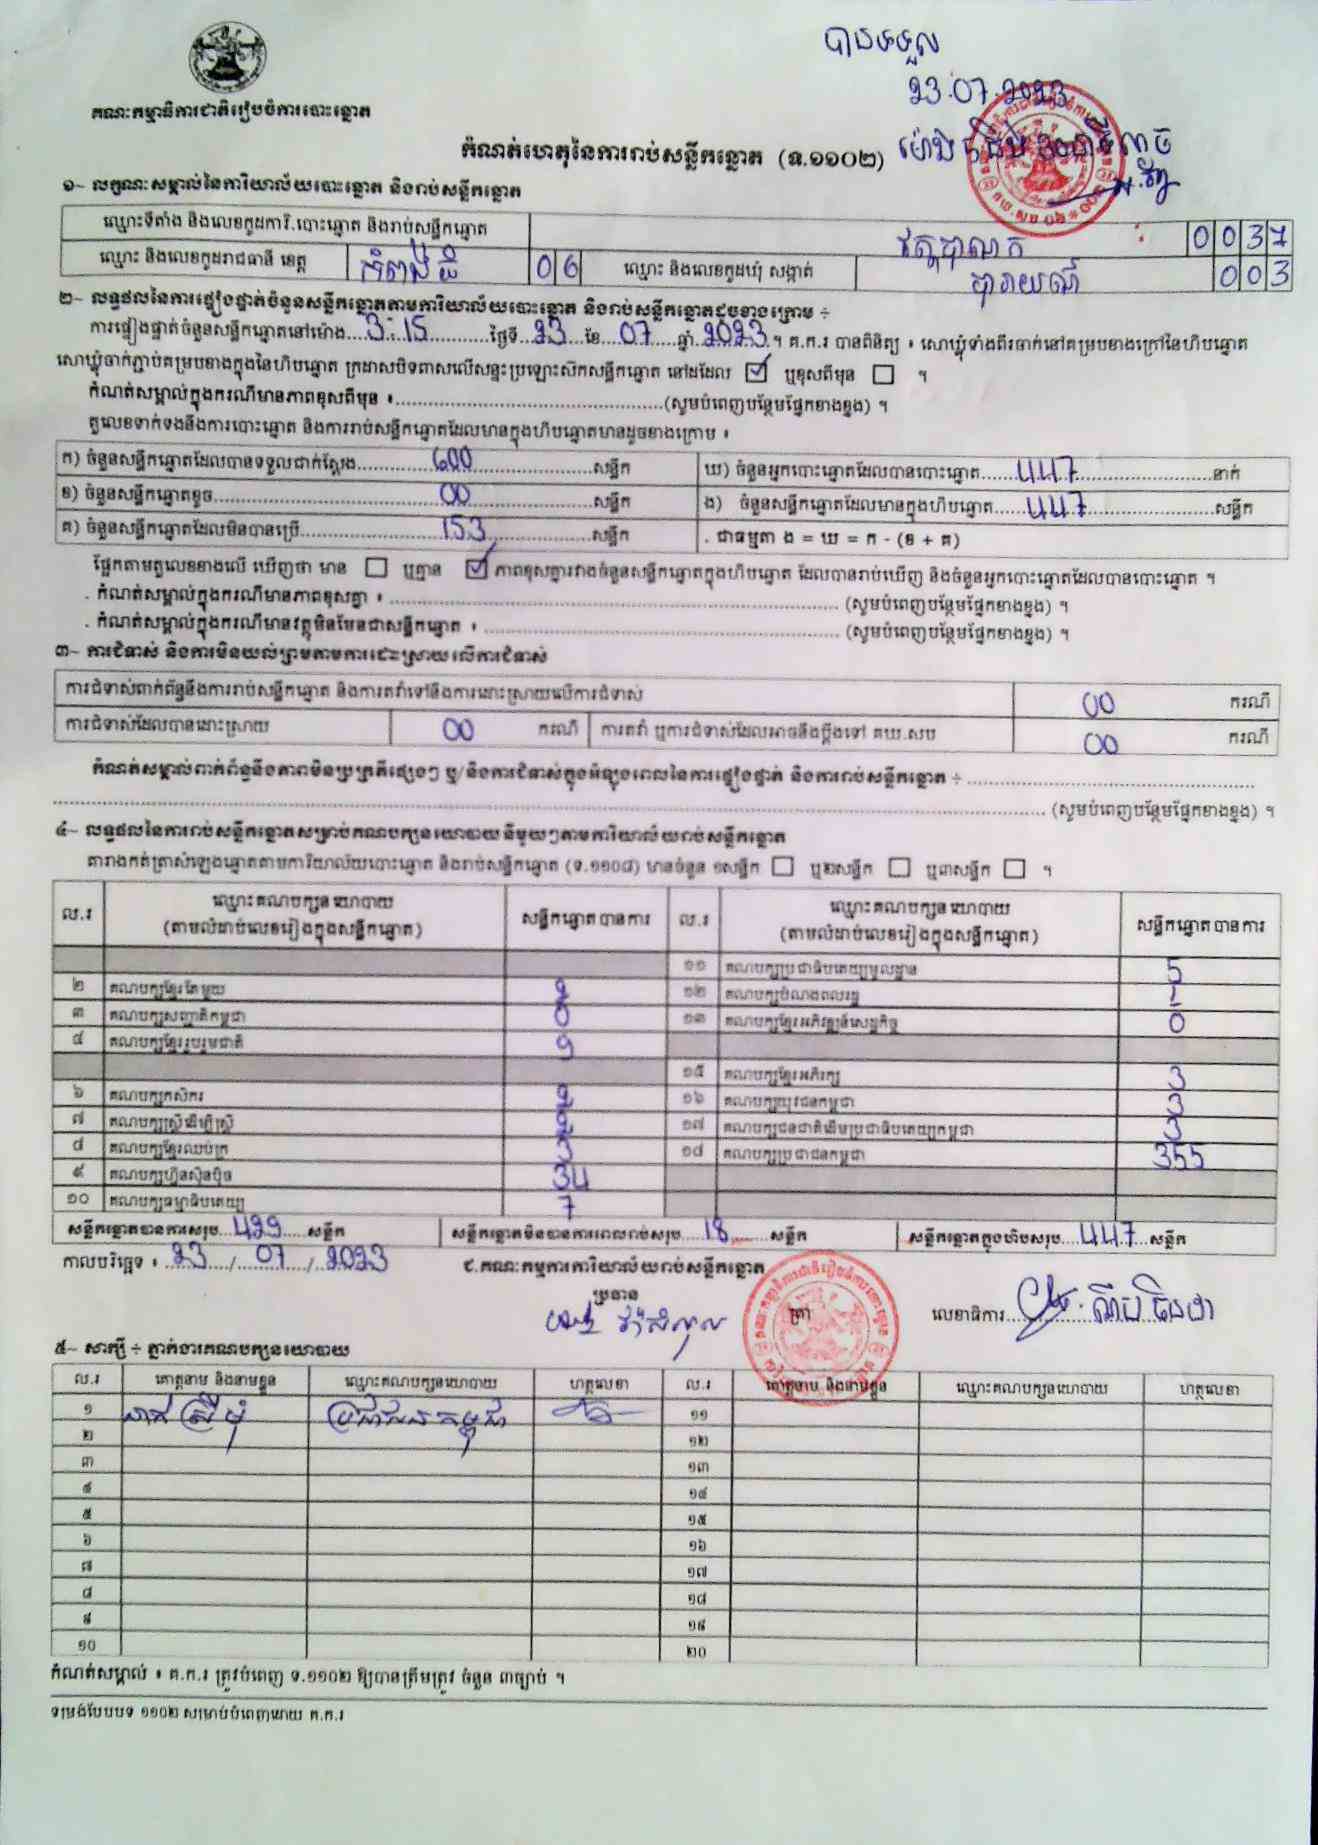 បានទទួល
23.07.2023
គណៈកម្មាធិការជាតិរៀបចំការបោះឆ្នោត
កំណត់ហេតុនៃការរាប់សន្លឹកឆ្នោត (ទ.១១០២)
១~ លក្ខណៈសម្គាល់នៃការិយាល័យបោះឆ្នោត និងរាប់សន្លឹកឆ្នោត
ឈ្មោះទីតាំង និងលេខកូដការិ.បោះឆ្នោត និងរាប់សន្លឹកឆ្នោត 0037
ឈ្មោះ និងលេខកូដរាជធានី ខេត្ត កំពង់ធំ 06 ឈ្មោះ និងលេខកូដឃុំ សង្កាត់ 003
២~ លទ្ធផលនៃការផ្ទៀងផ្ទាត់ចំនួនសន្លឹកឆ្នោតតាមការិយាល័យបោះឆ្នោត និងរាប់សន្លឹកឆ្នោតដូចខាងក្រោម ÷
ការផ្ទៀងផ្ទាត់ចំនួនសន្លឹកឆ្នោតនៅម៉ោង...3:15...ថ្ងៃទី...23...ខែ...07...ឆ្នាំ...2023...។ គ.ក.រ បានពិនិត្យ ៖ សោឃ្លុំទាំងពីរចាក់នៅគម្របខាងក្រៅនៃហិបឆ្នោត
សោឃ្លុំចាក់ភ្ជាប់គម្របខាងក្នុងនៃហិបឆ្នោត ក្រដាសបិទពាសលើសន្ទះប្រឡោះសិកសន្លឹកឆ្នោត នៅដដែល ☑ ឬខុសពីមុន ☐ ។
កំណត់សម្គាល់ក្នុងករណីមានភាពខុសពីមុន ៖...(សូមបំពេញបន្ថែមផ្នែកខាងខ្នង) ។
តួលេខទាក់ទងនឹងការបោះឆ្នោត និងការរាប់សន្លឹកឆ្នោតដែលមានក្នុងហិបឆ្នោតមានដូចខាងក្រោម ៖
ក) ចំនួនសន្លឹកឆ្នោតដែលបានទទួលជាក់ស្តែង...600...សន្លឹក ឃ) ចំនួនអ្នកបោះឆ្នោតដែលបានបោះឆ្នោត...447...នាក់
ខ) ចំនួនសន្លឹកឆ្នោតខូច...00...សន្លឹក ង) ចំនួនសន្លឹកឆ្នោតដែលមានក្នុងហិបឆ្នោត...447...សន្លឹក
គ) ចំនួនសន្លឹកឆ្នោតដែលមិនបានប្រើ...153...សន្លឹក . ជាធម្មតា ង = ឃ = ក - (ខ + គ)
ផ្អែកតាមតួលេខខាងលើ ឃើញថា មាន ☐ ឬគ្មាន ☑ ភាពខុសគ្នារវាងចំនួនសន្លឹកឆ្នោតក្នុងហិបឆ្នោត ដែលបានរាប់ឃើញ និងចំនួនអ្នកបោះឆ្នោតដែលបានបោះឆ្នោត ។
. កំណត់សម្គាល់ក្នុងករណីមានភាពខុសគ្នា ៖ ... (សូមបំពេញបន្ថែមផ្នែកខាងខ្នង) ។
. កំណត់សម្គាល់ក្នុងករណីមានវត្ថុមិនមែនជាសន្លឹកឆ្នោត ៖ ... (សូមបំពេញបន្ថែមផ្នែកខាងខ្នង) ។
៣~ ការជំទាស់ និងការមិនយល់ព្រមតាមការដោះស្រាយលើការជំទាស់
ការជំទាស់ពាក់ព័ន្ធនឹងការរាប់សន្លឹកឆ្នោត និងការតវ៉ាទៅនឹងការដោះស្រាយលើការជំទាស់ 00 ករណី
ការជំទាស់ដែលបានដោះស្រាយ 00 ករណី ការតវ៉ា ឬការជំទាស់ដែលអាចនឹងប្តឹងទៅ គឃ.សប 00 ករណី
កំណត់សម្គាល់ពាក់ព័ន្ធនឹងភាពមិនប្រក្រតីផ្សេងៗ ឬ/និងការជំទាស់ក្នុងអំឡុងពេលនៃការផ្ទៀងផ្ទាត់ និងការរាប់សន្លឹកឆ្នោត ÷ ...
... (សូមបំពេញបន្ថែមផ្នែកខាងខ្នង) ។
៤~ លទ្ធផលនៃការរាប់សន្លឹកឆ្នោតសម្រាប់គណបក្សនយោបាយនីមួយៗតាមការិយាល័យរាប់សន្លឹកឆ្នោត
តារាងកត់ត្រាសំឡេងឆ្នោតតាមការិយាល័យបោះឆ្នោត និងរាប់សន្លឹកឆ្នោត (ទ.១១០៨) មានចំនួន ១សន្លឹក ☐ ឬ២សន្លឹក ☐ ឬ៣សន្លឹក ☐ ។
ល.រ ឈ្មោះគណបក្សនយោបាយ (តាមលំដាប់លេខរៀងក្នុងសន្លឹកឆ្នោត) សន្លឹកឆ្នោតបានការ ល.រ ឈ្មោះគណបក្សនយោបាយ (តាមលំដាប់លេខរៀងក្នុងសន្លឹកឆ្នោត) សន្លឹកឆ្នោតបានការ
១១ គណបក្សប្រជាធិបតេយ្យមូលដ្ឋាន 5
២ គណបក្សខ្មែរតែមួយ ១២ គណបក្សបំណងពលរដ្ឋ
៣ គណបក្សសញ្ជាតិកម្ពុជា 0 ១៣ គណបក្សខ្មែរអភិវឌ្ឍន៍សេដ្ឋកិច្ច 0
៤ គណបក្សខ្មែររួបរួមជាតិ
១៥ គណបក្សខ្មែរអភិរក្ស 3
៦ គណបក្សកសិករ ១៦ គណបក្សយុវជនកម្ពុជា 3
៧ គណបក្សស្ត្រីដើម្បីស្ត្រី ១៧ គណបក្សជនជាតិដើមប្រជាធិបតេយ្យកម្ពុជា 3
៨ គណបក្សខ្មែរឈប់ក្រ ១៨ គណបក្សប្រជាជនកម្ពុជា 355
៩ គណបក្សហ៊្វុនស៊ិនប៉ិច 34
១០ គណបក្សធម្មាធិបតេយ្យ 7
សន្លឹកឆ្នោតបានការសរុប...429...សន្លឹក សន្លឹកឆ្នោតមិនបានការពេលរាប់សរុប...18...សន្លឹក សន្លឹកឆ្នោតក្នុងហិបសរុប...447...សន្លឹក
កាលបរិច្ឆេទ ៖ 23/07/2023 ជ.គណៈកម្មការការិយាល័យរាប់សន្លឹកឆ្នោត
ប្រធាន ត្រា លេខាធិការ
៥~ សាក្សី ÷ ភ្នាក់ងារគណបក្សនយោបាយ
ល.រ គោត្តនាម និងនាមខ្លួន ឈ្មោះគណបក្សនយោបាយ ហត្ថលេខា ល.រ គោត្តនាម និងនាមខ្លួន ឈ្មោះគណបក្សនយោបាយ ហត្ថលេខា
១ ប្រជាជនកម្ពុជា ១១
២ ១២
៣ ១៣
៤ ១៤
៥ ១៥
៦ ១៦
៧ ១៧
៨ ១៨
៩ ១៩
១០ ២០
កំណត់សម្គាល់ ៖ គ.ក.រ ត្រូវបំពេញ ទ.១១០២ ឱ្យបានត្រឹមត្រូវ ចំនួន ៣ច្បាប់ ។
ទម្រង់បែបបទ ១១០២ សម្រាប់បំពេញដោយ គ.ក.រ